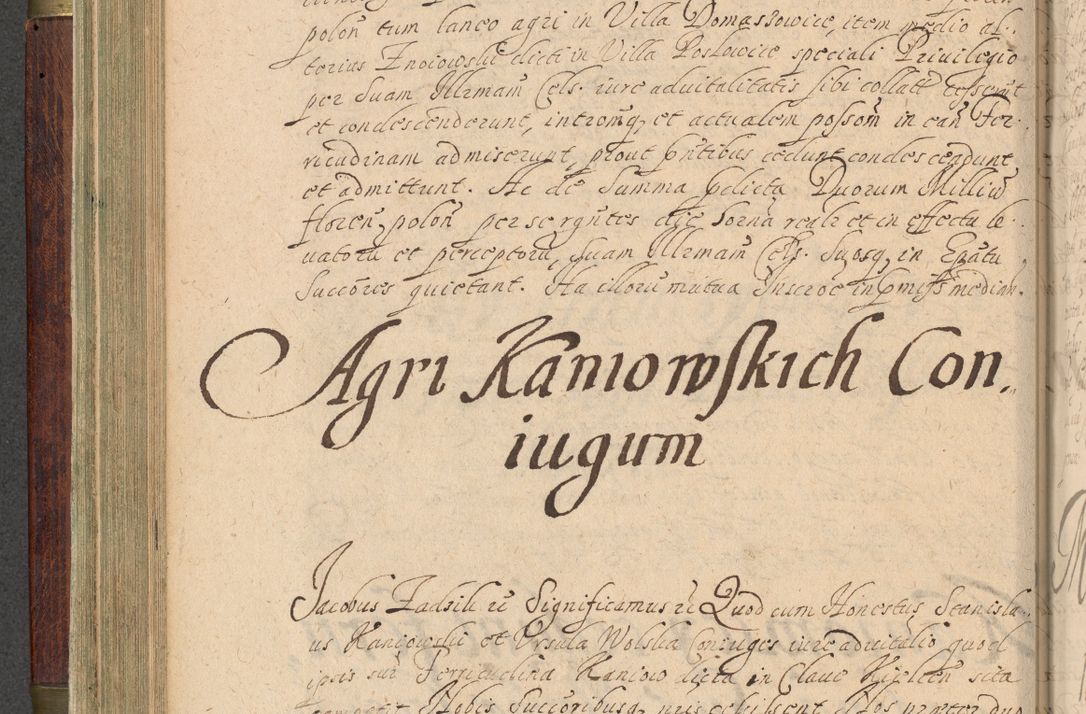 polon̄ cum laneo agri in Villa Domassowice, item medio al-
terius Znoiowskie dicti in Villa Posłowice speciali Privilegio
per Suam Illrmam̄ Cels. iure advitalitatis sibi collatt̄ cesserūt
et condescenderunt, intromq, et actualem possom̄ in eān̄ For-
ricudinam admiserunt, prout p̄ntibus cedunt condescendunt,
et admittunt. Ac de Summa p̄dicta Duorum Milliū
floren, polon̄ per se rgn̄tes
reale et in effectu le-
vatoru et perceptoru, Suam Illrmam̄ Cels. Suosq, in Ep̄atu
Succōres quietant. Ha illoru mutua Inscroe in p̄miss median.
Agri Kaniowskich Con„
iugum
Jacobus Zadzik etc̄ Significamus etc̄ Quod cum Honestus Stanisla-
us Kaniowskii et Ursula Wolska Coniuges iure advitalio quod
ipsis sup̄ Ferricudina Kaniow dicta in Clave Kielcen̄ sita
competit Nobis Succōribusq, nr̄is cessissent Nos præter duo